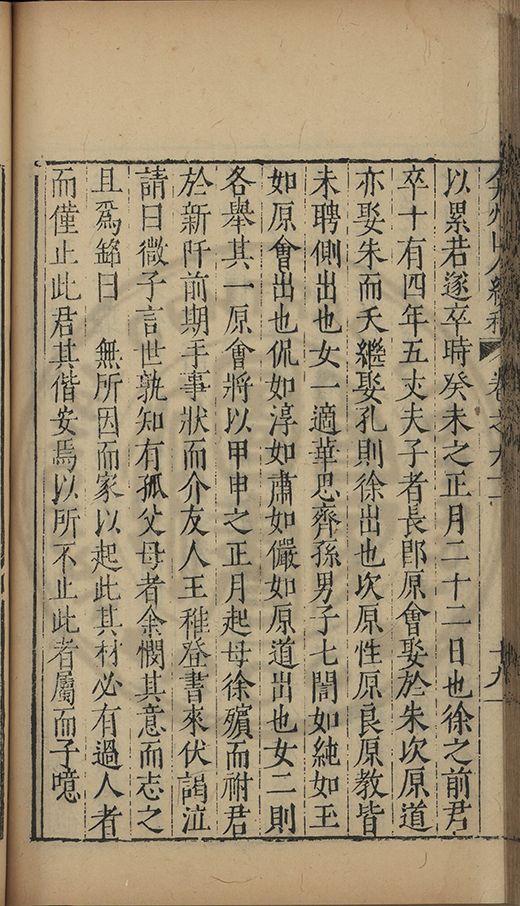 弇州山人續稿 卷之九十二 十九
以累若遂卒時癸未之正月二十二日也徐之前君
卒十有四年五丈夫子者長郎原會娶於朱次原道
亦娶朱而夭繼娶孔則徐出也次原性原良原教皆
未聘側出也女一適華思齊孫男子七誾如純如玉
如原會出也侃如淳如肅如儼如原道出也女二則
各舉其一原會將以甲申之正月起母徐殯而祔君
於新阡前期手事狀而介友人王穉登書來伏謁泣
請曰微子言世孰知有孤父母者余憫其意而志之
且爲銘曰 無所因而家以起此其材必有過人者
而僅止此君其偕安焉以所不止此者屬而子噫